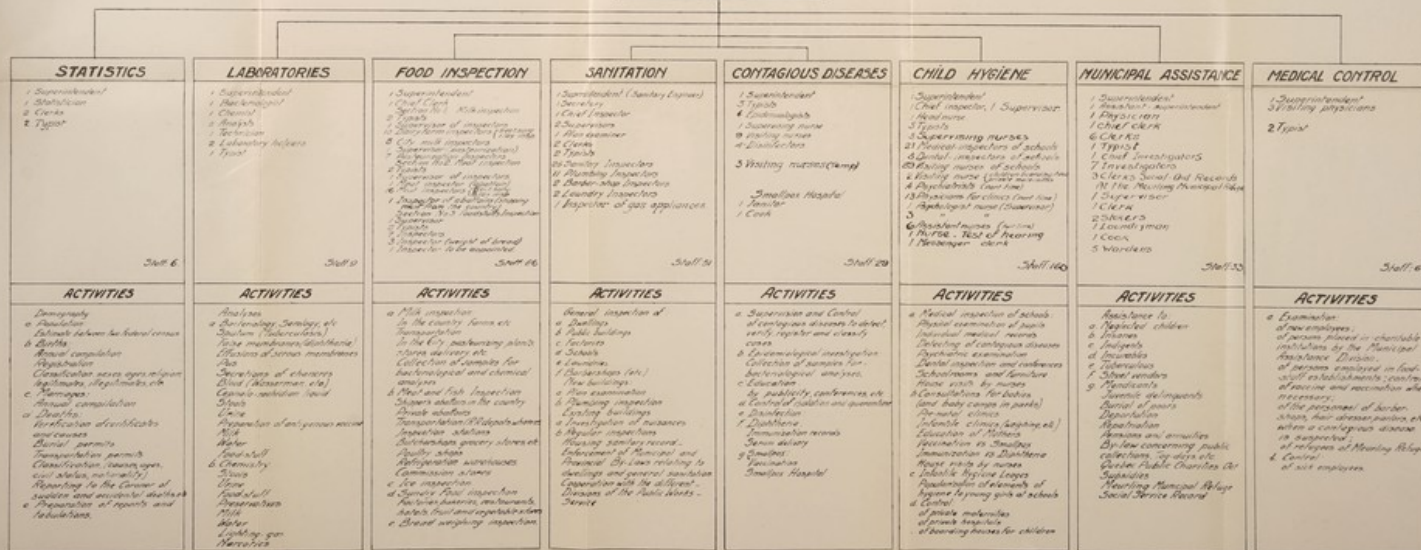 STATISTICS
1 Superintendent
1 Statistician
2 Clerks
2 Typist
Staff 6
ACTIVITIES
Demography
a Population
Estimate between two federal census
b Births
Annual compilation
Registration
Classification sexes, ages, religion
legitimates, illegitimates, etc
c Marriages:
Annual compilation
d Deaths:
Verification of certificates
and causes
Burial permits
Transportation permits
Classification (causes, ages,
civil status, nationality)
Reporting to the Coroner of
sudden and accidental deaths
e Preparation of reports and
tabulations.
LABORATORIES
1 Superintendent
1 Bacteriologist
1 Chemist
1 Analyst
1 Technician
2 Laboratory helpers
1 Typist
Staff
ACTIVITIES
Analyses
a Bacteriology, Serology, etc
Sputum (Tuberculosis)
False membranes (diphtheria)
Effusions of serous membranes
Pus
Secretions of chancres
Blood (Wasserman, etc)
Cephalo-rachidian liquid
Stools
Urine
Preparation of antigenous vaccine
Milk
Water
Foodstuff
b Chemistry
Stools
Urine
Foodstuff
Preservatives
Milk
Water
Lighting gas
Narcotics
FOOD INSPECTION
1 Superintendent
1 Chief Clerk
Section No 1 Milk inspection
2 Typists
1 Supervisor of inspectors
Dairy farm inspectors
8 City milk inspectors
Supervisor pasteurization
7 Pasteurization Inspectors
Section No 2 Meat inspection
2 Typists
1 Supervisor of inspectors
Meat inspector
Meat inspectors
1 Inspector of abattoirs
meat from the country)
Section No 3 Foodstuffs Inspection
1 Supervisor
Typists
Inspectors
3 Inspector (weight of bread)
1 Inspector to be appointed
Staff 66
ACTIVITIES
a Milk inspection
In the country farms etc
Transportation
In the City, pasteurizing plants,
stores, delivery etc.
Collection of samples for
bacteriological and chemical
analyses
b Meat and Fish Inspection
Shippers abattoirs in the country
Private abattoirs
Transportation
Inspection stations
Butchershops, grocery stores, etc
Poultry shops
Refrigeration warehouses
Commission stores
c Ice inspection
d Sundry Food inspection
Factories, bakeries, restaurants,
hotels, fruit and vegetable stores
e Bread weighing inspection.
SANITATION
1 Superintendent (Sanitary Engineer)
1 Secretary
1 Chief Inspector
2 Supervisors
1 Plan examiner
2 Clerks
2 Typists
Sanitary Inspectors
11 Plumbing Inspectors
2 Barber-shop Inspectors
2 Laundry Inspectors
1 Inspector of gas appliances
Staff 51
ACTIVITIES
General inspection of
a Dwellings
b Public buildings
c Factories
d Schools
e Laundries
f Barbershops (etc)
New buildings:
a Plan examination
b Plumbing inspection
Existing buildings
a Investigation of nuisances
b Regular inspections
Housing sanitary record
Enforcement of Municipal and
Provincial By-Laws relating to
dwellings and general sanitation
Cooperation with the different
Divisions of the Public Works
Service
CONTAGIOUS DISEASES
1 Superintendent
3 Typists
6 Epidemiologists
1 Supervising nurse
Visiting nurses
4 Disinfectors
3 Visiting nurses (temp)
Smallpox Hospital
1 Janitor
1 Cook
Staff 29
ACTIVITIES
a Supervision and Control
of contagious diseases to detect,
verify, register and classify
cases
b Epidemiological investigation
Collection of samples for
bacteriological analyses.
c Education
by publicity, conferences, etc
d Control of isolation and quarantine
e Disinfection
f Diphtheria:
Immunization records
Serum delivery
g Smallpox:
Vaccination
Smallpox Hospital
CHILD HYGIENE
1 Superintendent
1 Chief inspector, 1 Supervisor
1 Head nurse
3 Typists
3 Supervising nurses
21 Medical inspectors of schools
Dental inspectors of schools
Visiting nurses of schools
2 Visiting nurse
4 Psychiatrists (part time)
13 Physicians for clinics (part time)
1 Psychologist nurse (Supervisor)
3 " "
6 Assistant nurses
1 Nurse - Test of hearing
1 Messenger clerk
Staff: 160
ACTIVITIES
a Medical inspection of schools:
Physical examination of pupils
Individual medical records
Detecting of contagious diseases
Psychiatric examination
Dental inspection and conferences
Schoolrooms and furniture
House visits by nurses
b Consultations for babies
(and baby camps in parks)
Pre-natal clinics
Infantile clinics (weighing, etc)
Education of Mothers
Vaccination vs Smallpox
Immunization vs Diphtheria
House visits by nurses
c Infantile Hygiene Leages
Popularization of elements of
hygiene to young girls at schools
d Control
of private maternities
of private hospitals
of boarding houses for children
MUNICIPAL ASSISTANCE
1 Superintendent
1 Assistant-superintendent
1 Physician
1 Chief clerk
6 Clerks
1 Typist
1 Chief Investigators
7 Investigators
3 Clerks Social Out Records
At the Meurling Municipal Refuge
1 Supervisor
1 Clerk
2 Stokers
1 Laundryman
1 Cook
5 Wardens
Staff: 33
ACTIVITIES
Assistance to:
a Neglected children
b Insanes
c Indigents
d Incurables
e Tuberculous
f Street vendors
g Mendicants
Juvenile delinquents
Burial of poors
Deportation
Repatriation
Pensions and annuities
By-law concerning public
collections, Tag days etc
Quebec Public Charities Act
Subsidies
Meurling Municipal Refuge
Social Service Record
MEDICAL CONTROL
1 Superintendent
3 Visiting physicians
2 Typist
Staff: 6
ACTIVITIES
a Examination:
of new employees;
of persons placed in charitable
institutions by the Municipal
Assistance Division;
of persons employed in food-
stuff establishments; control
of vaccine and vaccination when
necessary;
of the personnel of barber-
shops, hair dresser parlors, etc
when a contagious disease
is suspected;
of refugees of Meurling Refuge
b Control
of sick employees.